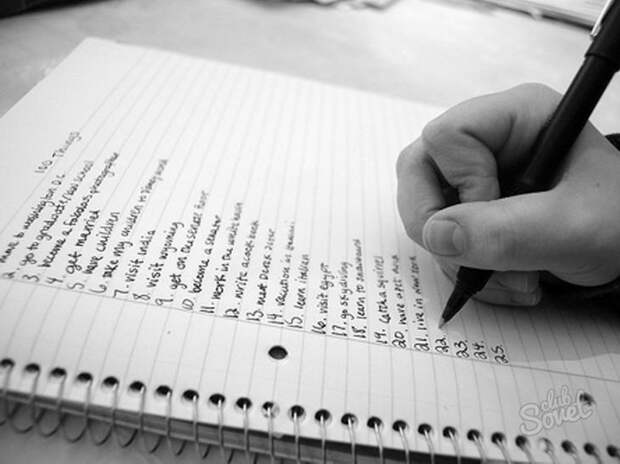 100 Things
move to washington D.C.
2. go to graduate/law school
3. become a fabulous photographer
4. get married
5. have children
6. take my children to disney world
7. visit India
8. visit wyoming
9. get on the senate floor
10. become a senator
11. work in the white house
12. write a cookbook
13. meet Derek Jeter
14. vacation in hawaii
15. learn italian
16. visit egypt
17. go skydiving
18. learn to
19. catch a squirrel
20. have
21. live in new york
22.
23.
24.
25.
club
Sovet